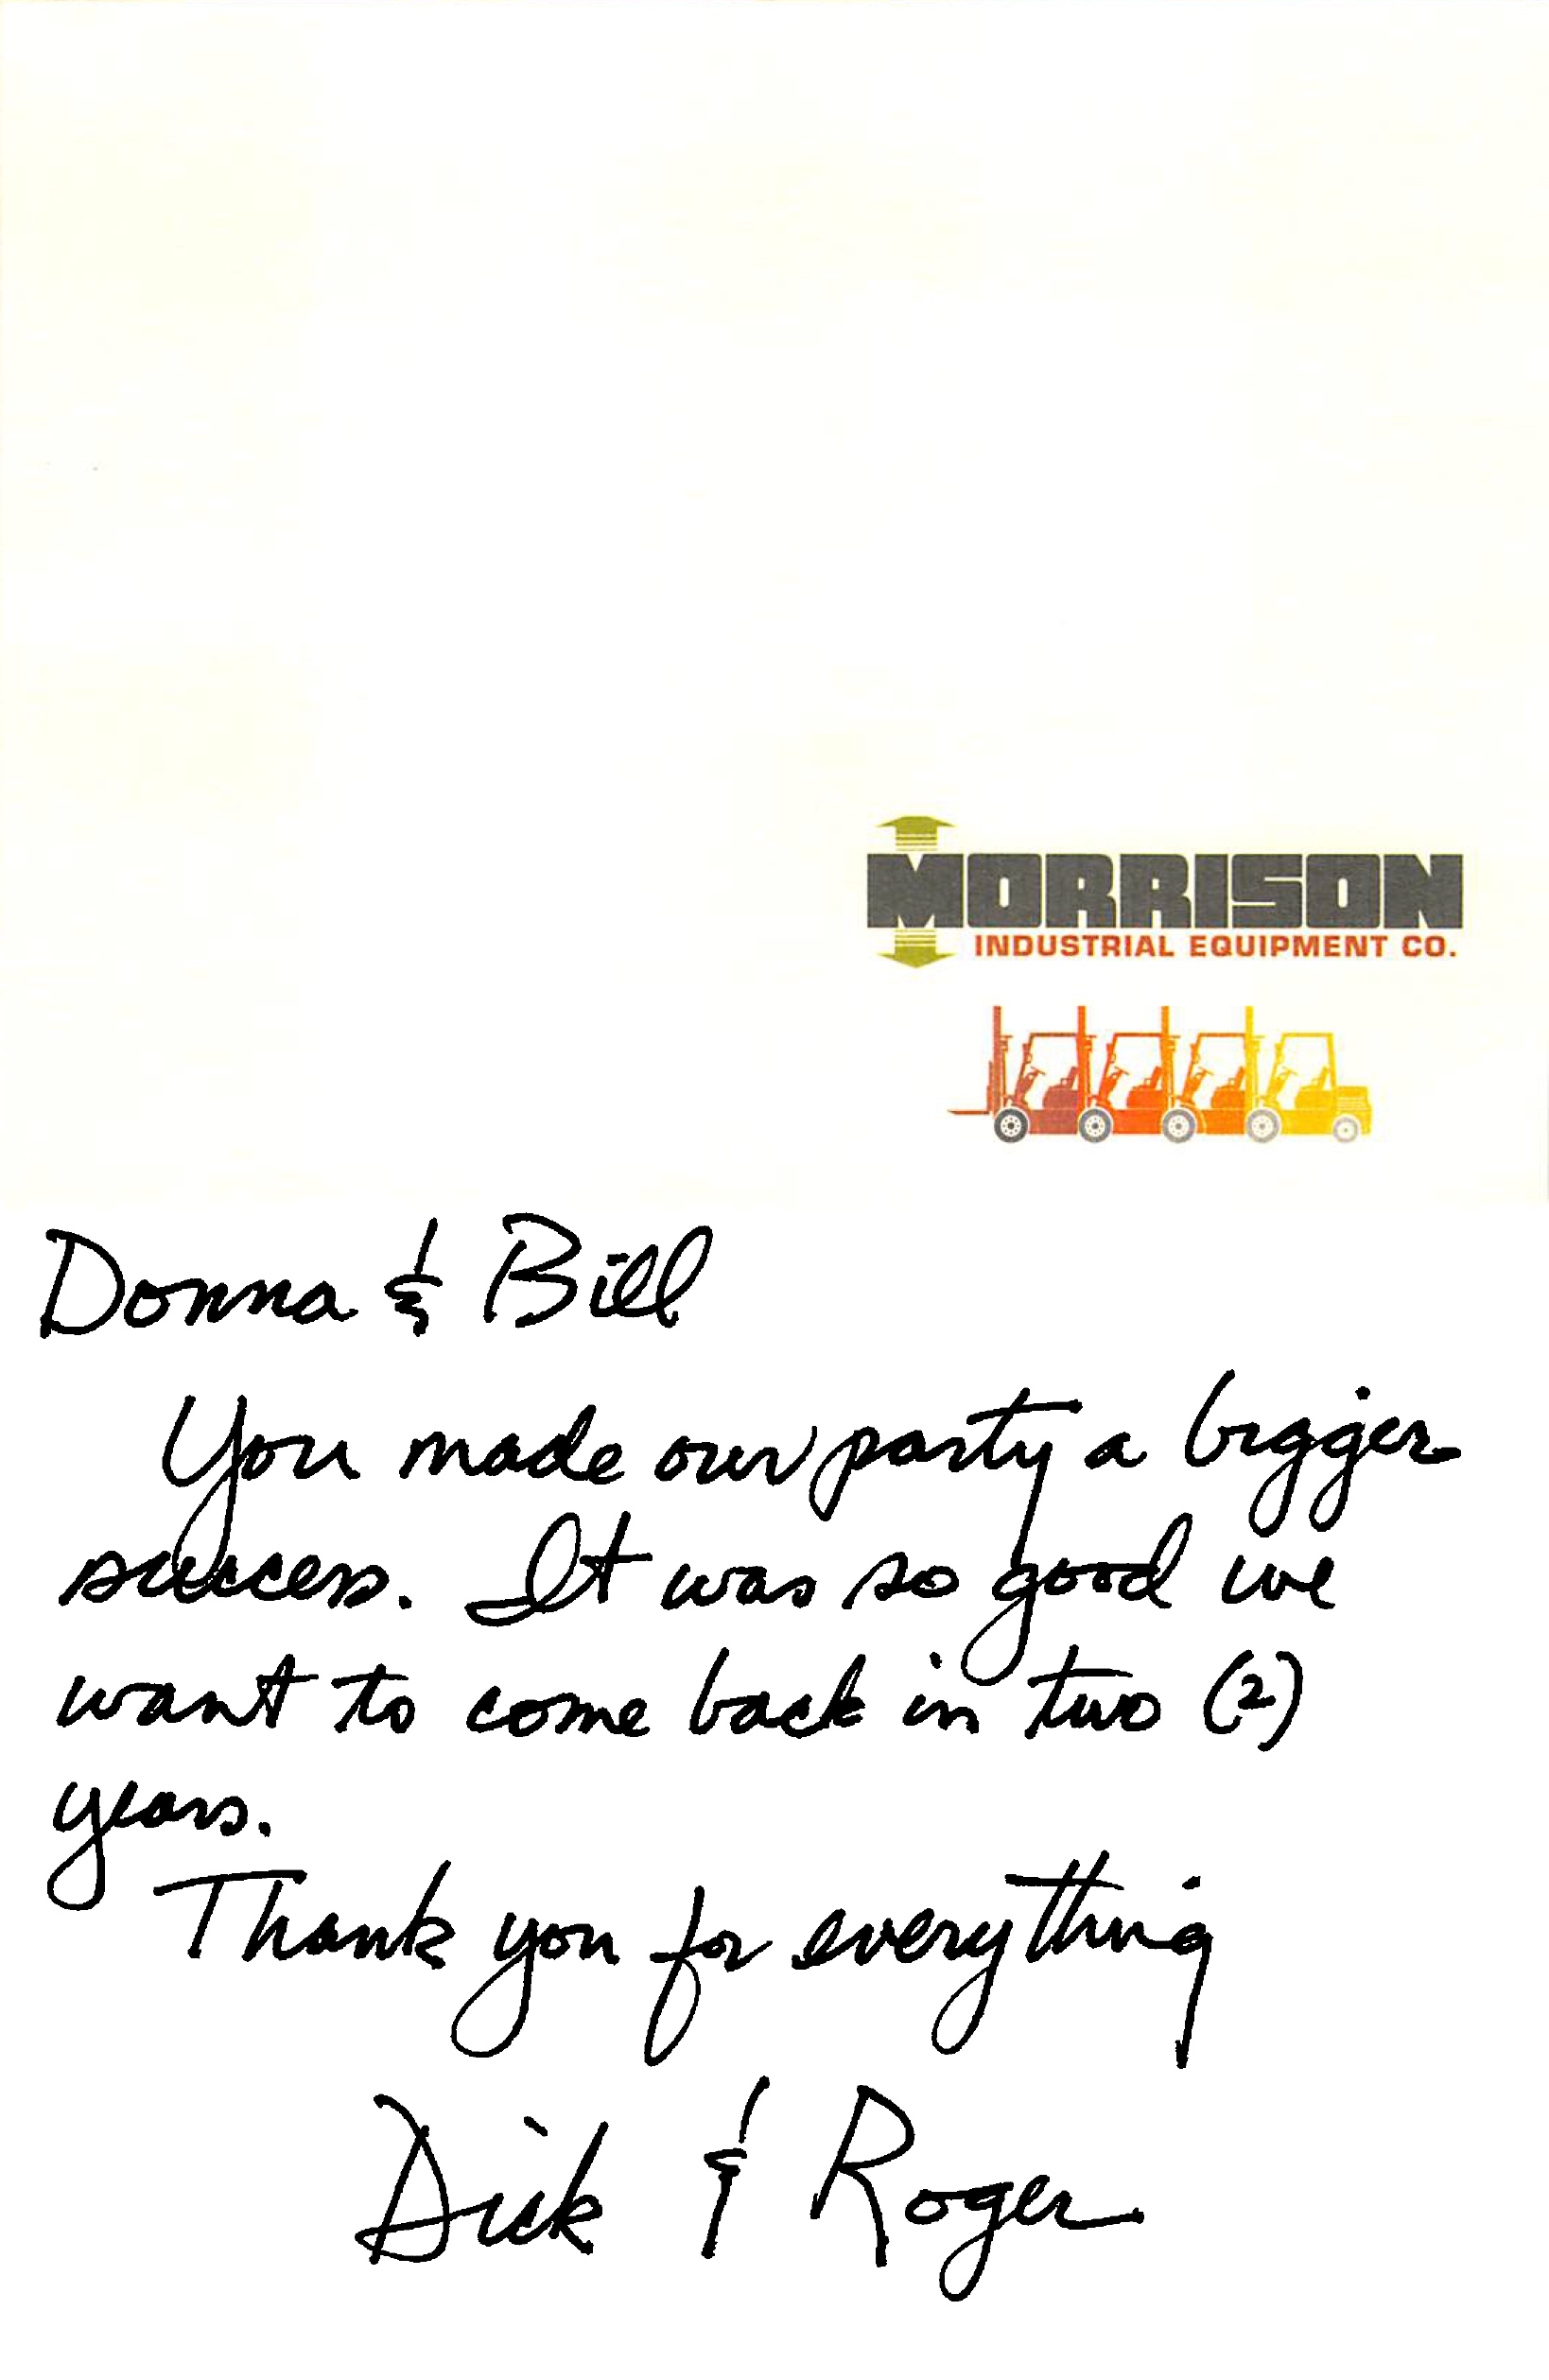 MORRISON
INDUSTRIAL EQUIPMENT CO.
Donna & Bill
You made our party a bigger
success. It was so good we
want to come back in two (2)
years.
Thank you for everything
Dick & Roger